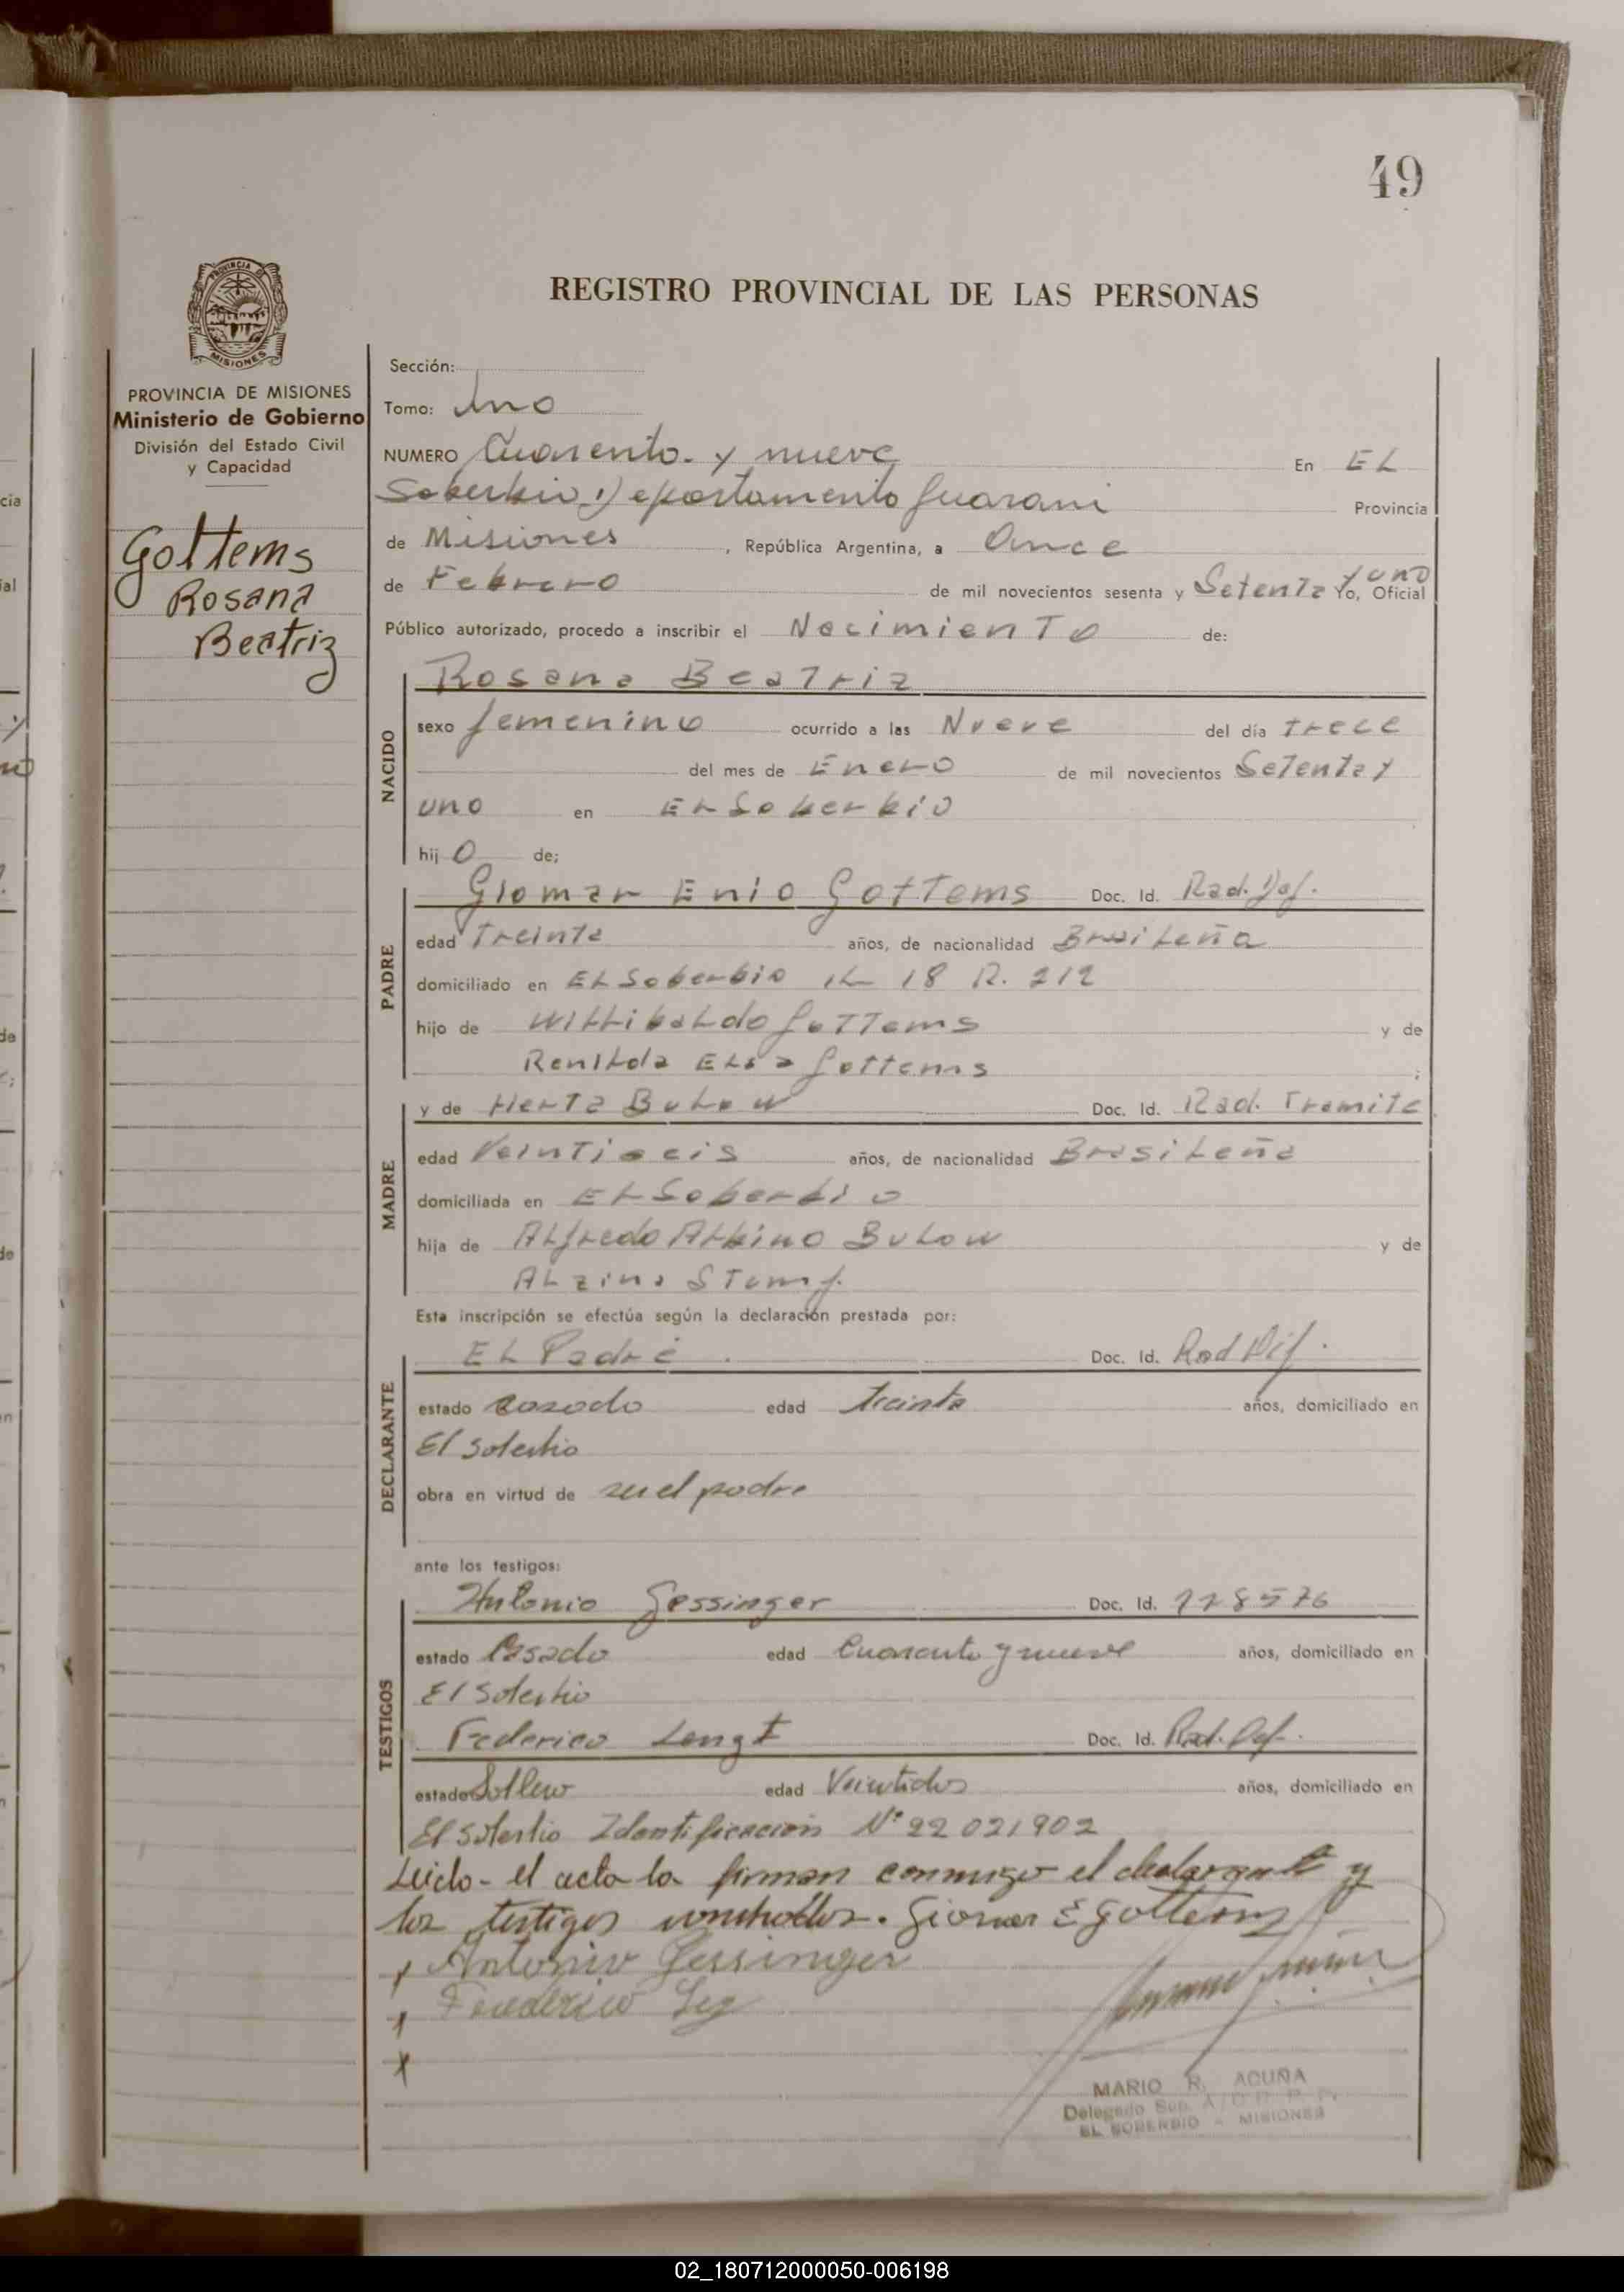 49
REGISTRO PROVINCIAL DE LAS PERSONAS
PROVINCIA DE MISIONES
Ministerio de Gobierno
División del Estado Civil
y Capacidad
Gottems
Rosana
Beatriz
Sección:
Tomo: Uno
NUMERO Cuarenta y nueve En EL
Soberbio Departamento Guarani Provincia
de Misiones, República Argentina, a Once
de Febrero de mil novecientos sesenta y Setenta y uno Yo, Oficial
Público autorizado, procedo a inscribir el Nacimiento de:
NACIDO
Rosana Beatriz
sexo femenino ocurrido a las Nueve del día trece
del mes de Enero de mil novecientos Setenta y
uno en EL Soberbio
hij o de;
PADRE
Giomar Enio Gottems Doc. Id. Rad. Def.
edad Treinta años, de nacionalidad Brasileña
domiciliado en EL Soberbio L 18 R. 212
hijo de Willibaldo Gottems y de
Renilda Elsa Gottems ;
MADRE
y de Herta Bulow Doc. Id. Rad. Tramite
edad Veintiseis años, de nacionalidad Brasileña
domiciliada en EL Soberbio
hija de Alfredo Albino Bulow y de
Alzira Stumf.
Esta inscripción se efectúa según la declaración prestada por:
DECLARANTE
EL Padre. Doc. Id. Rad Def.
estado casado edad treinta años, domiciliado en
El Soberbio
obra en virtud de ser el padre
ante los testigos:
TESTIGOS
Antonio Gessinger Doc. Id. 228576
estado Casado edad Cuarenta y nueve años, domiciliado en
El Soberbio
Federico Doc. Id. Rad. Def.
estado Soltero edad Veintidos años, domiciliado en
El Soberbio Identificacion Nº 22021902
Leida el acta la firman conmigo el declarante y
los testigos nombrados. Giomar E Gottems
x Antonio Gessinger
x
x
MARIO R. ACUÑA
Delegado Sup. A/C R. P. P.
EL SOBERBIO - MISIONES
02_180712000050-006198